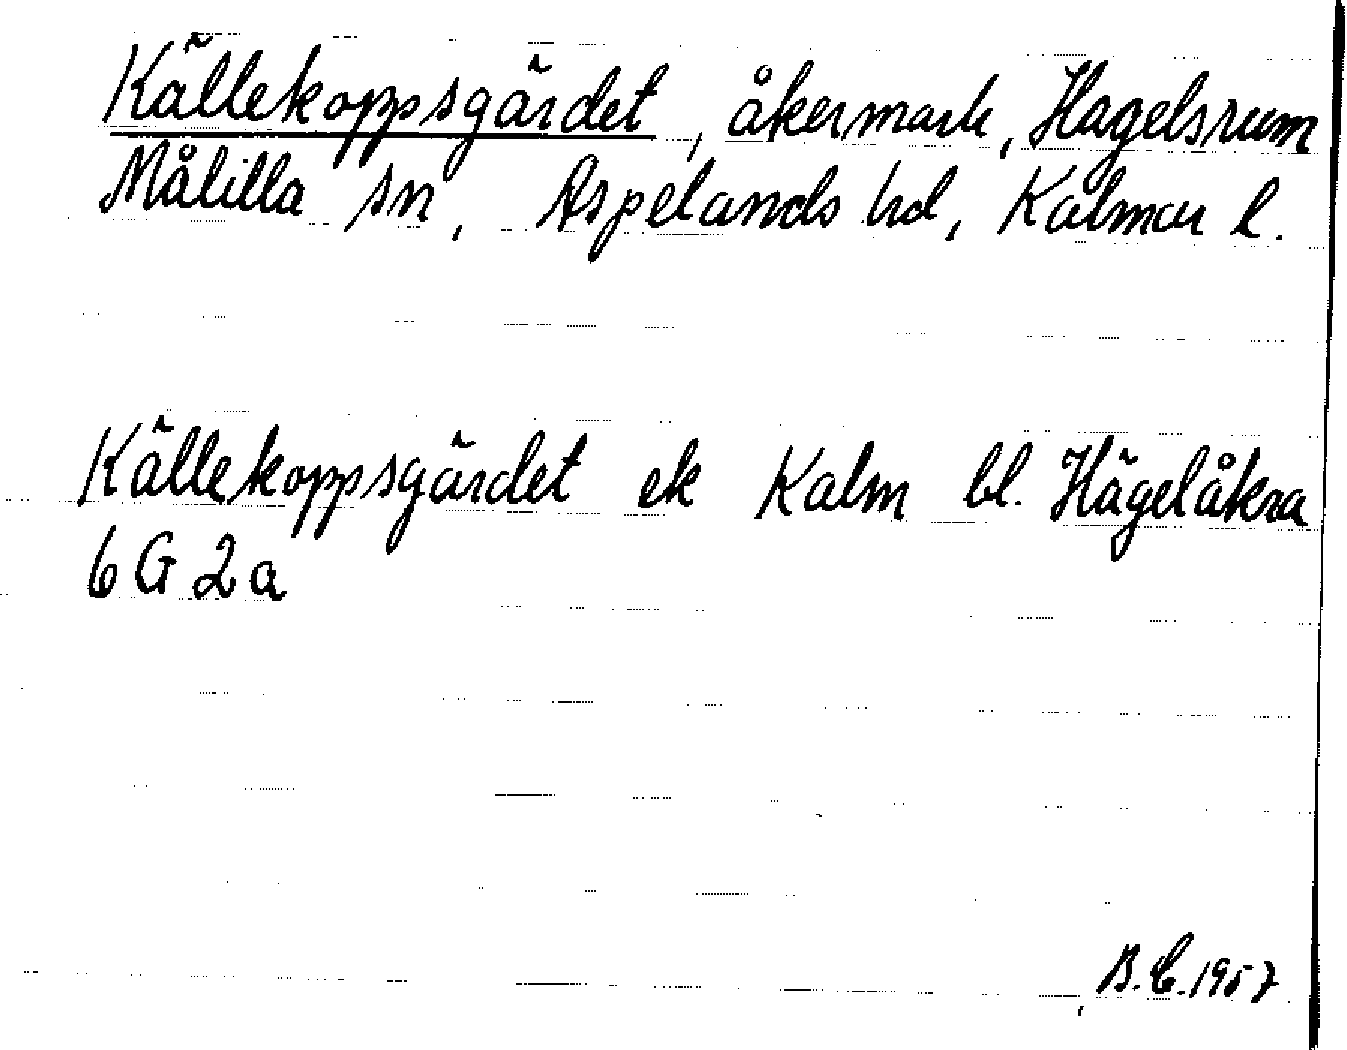 Källekoppsgärdet, åkermark, Hagelsrum
Målilla sn, Aspelands hd, Kalmar l.
Källekoppsgärdet ek Kalm bl. Hägelåkra
6 G 2 a
B.C. 1957